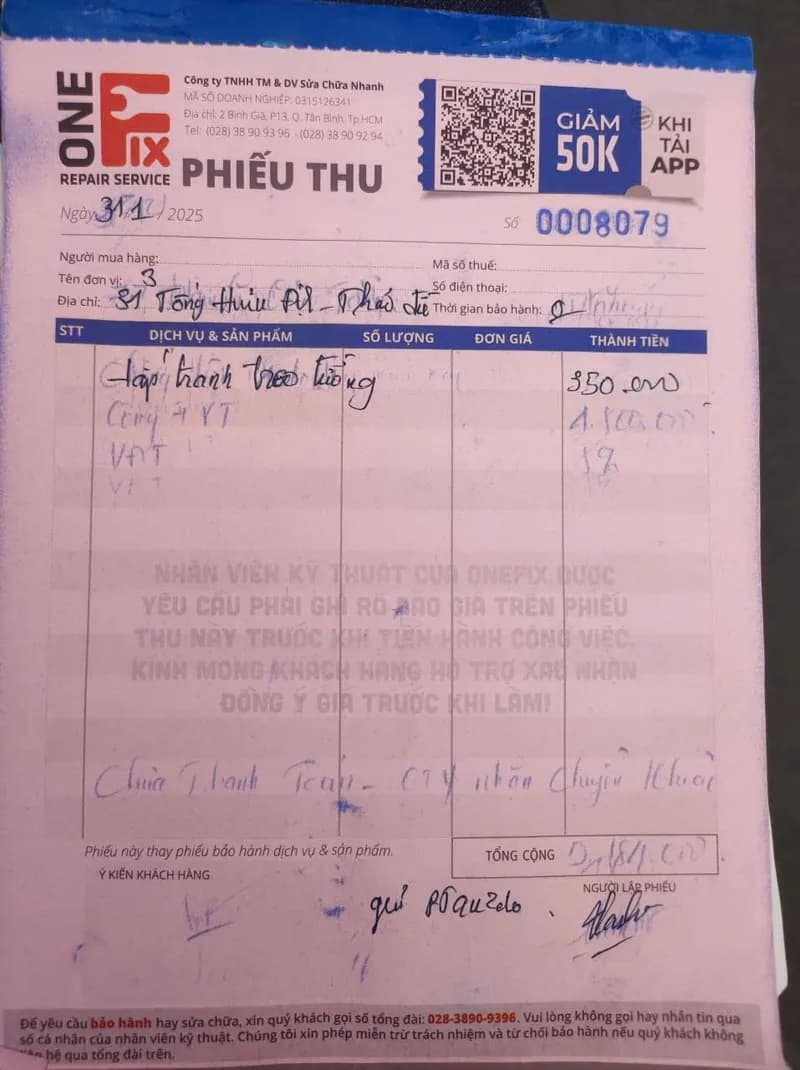 ONE FIX
REPAIR SERVICE
Công ty TNHH TM & DV Sửa Chữa Nhanh
MÃ SỐ DOANH NGHIỆP: 0315126341
Địa chỉ: 2 Bình Giã, P13, Q. Tân Bình, Tp.HCM
Tel: (028) 38 90 93 96 - (028) 38 90 92 94
PHIẾU THU
GIẢM 50K
KHI TẢI APP
Ngày 31/1/2025
Số 0008079
Người mua hàng:
Mã số thuế:
Tên đơn vị: 3
Số điện thoại:
Địa chỉ: 31 Tống Hữu Định - Thảo
Thời gian bảo hành:
STT DỊCH VỤ & SẢN PHẨM SỐ LƯỢNG ĐƠN GIÁ THÀNH TIỀN
- lắp tranh treo tường 350.000
Công + VT
VAT
NHÂN VIÊN KỸ THUẬT CỦA ONEFIX ĐƯỢC
YÊU CẦU PHẢI GHI RÕ BÁO GIÁ TRÊN PHIẾU
THU NÀY TRƯỚC KHI TIẾN HÀNH CÔNG VIỆC.
KÍNH MONG KHÁCH HÀNG HỖ TRỢ XÁC NHẬN
ĐỒNG Ý GIÁ TRƯỚC KHI LÀM!
Chưa Thanh Toán - CTY nhận Chuyển Khoản
Phiếu này thay phiếu bảo hành dịch vụ & sản phẩm.
TỔNG CỘNG
Ý KIẾN KHÁCH HÀNG
NGƯỜI LẬP PHIẾU
Để yêu cầu bảo hành hay sửa chữa, xin quý khách gọi số tổng đài: 028-3890-9396. Vui lòng không gọi hay nhắn tin qua
số cá nhân của nhân viên kỹ thuật. Chúng tôi xin phép miễn trừ trách nhiệm và từ chối bảo hành nếu quý khách không
hệ qua tổng đài trên.